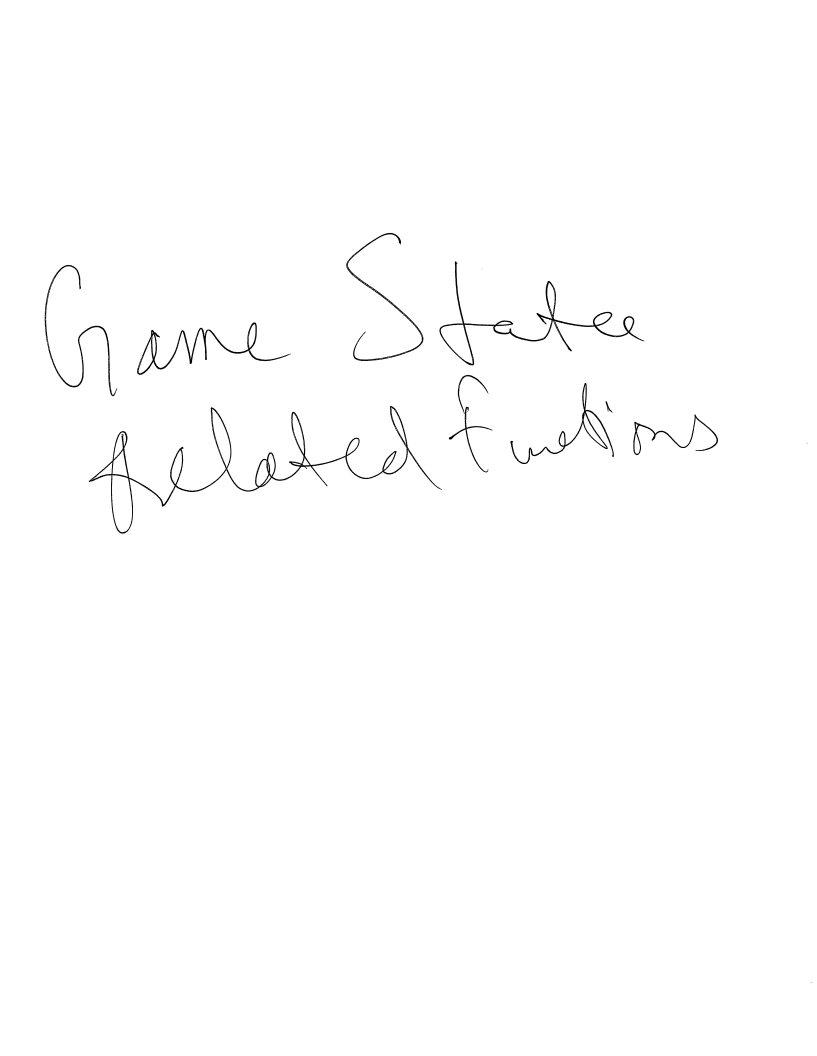 Game State
Related Functions